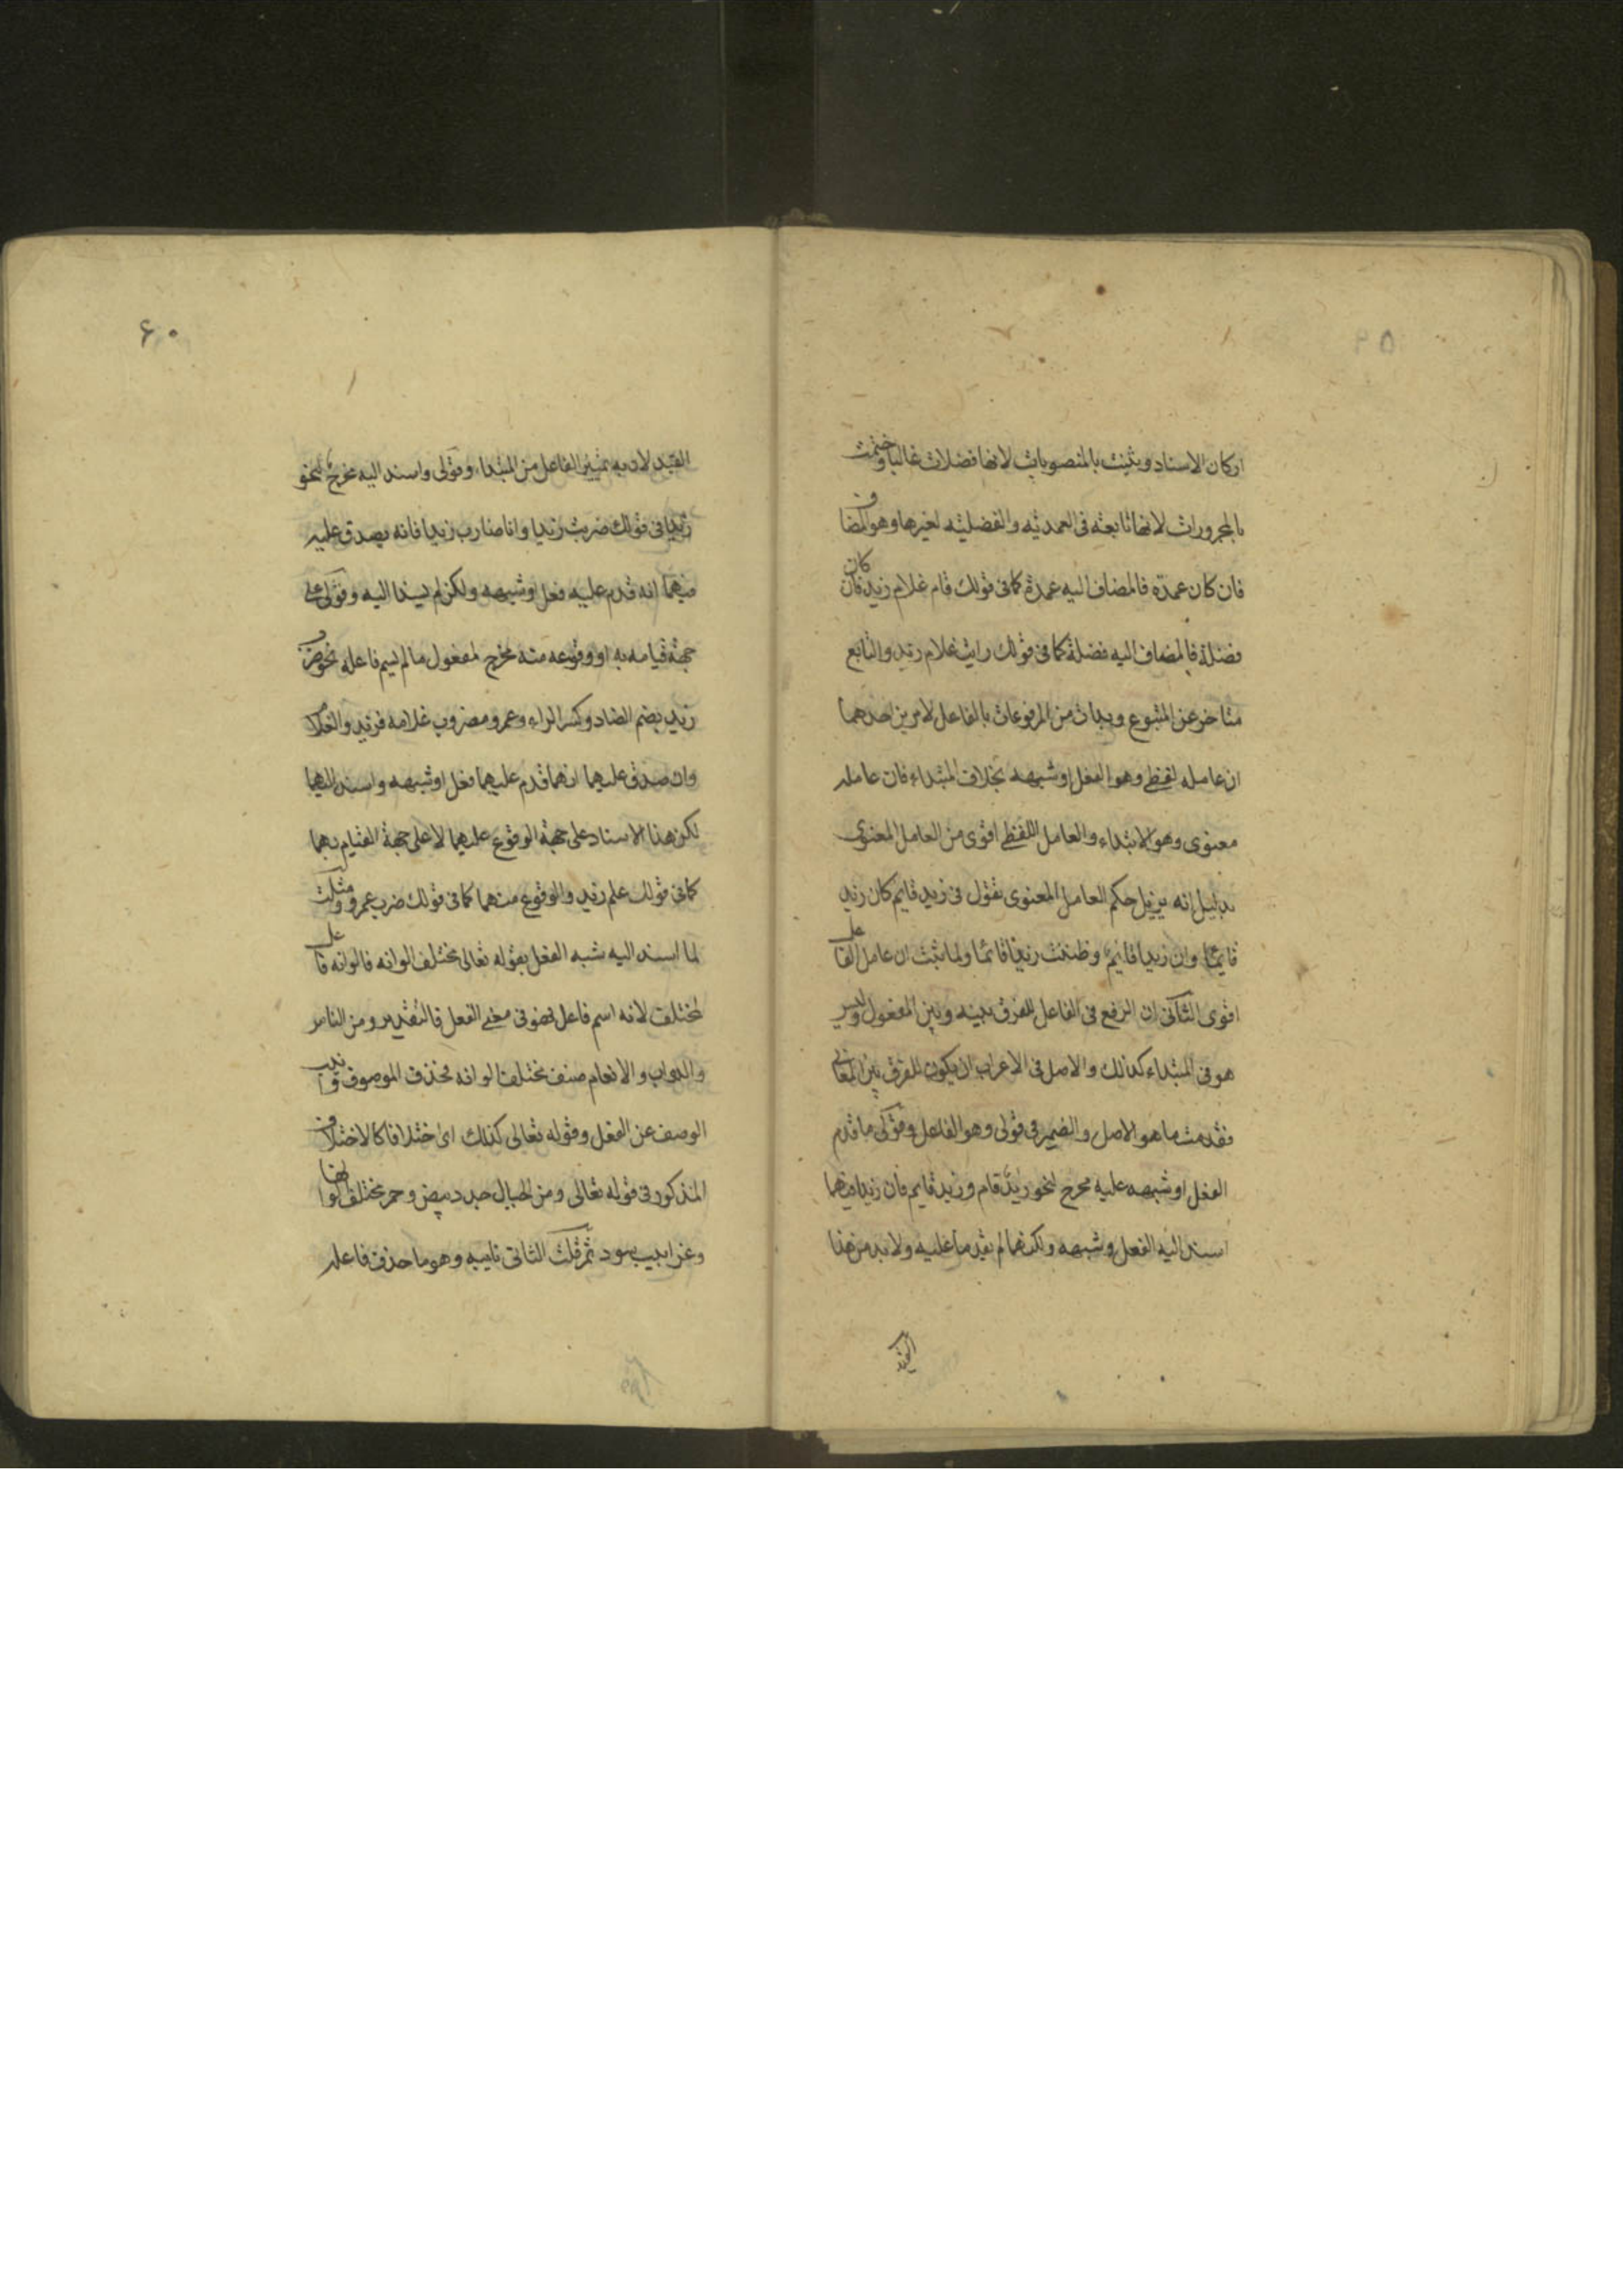 اركان الاسناد وثنيت بالمنصوبات لانها فضلات غالبا وختمت
بالمجرورات لانها تابعة فى العمدية والفضلية لغيرها وهو المضاف
فان كان عمدة فالمضاف اليه عمدة كما فى قولك قام غلام زيد وان كان
فضلة فالمضاف اليه فضلة كما فى قولك رايت غلام زيد والتابع
متاخر عن المتبوع وبدات من المرفوعات بالفاعل لامرين احدهما
ان عامله لفظى وهو الفعل او شبهه بخلاف المبتداء فان عامله
معنوى وهو الابتداء والعامل اللفظى اقوى من العامل المعنوى
بدليل انه يزيل حكم العامل المعنوى تقول فى زيد قايم كان زيد
قايما وان زيدا قايم وظننت زيدا قائما ولما ثبت ان عامل الفاعل
اقوى الثانى ان الرفع فى الفاعل للفرق بينه وبين المفعول وليس
هو فى المبتداء كذلك والاصل فى الاعراب ان يكون للفرق بين المعانى
فقدمت ما هو الاصل والضمير فى قولى وهو الفاعل وقولى ما قدم
الفعل او شبهه عليه مخرج لنحو زيد قام وزيد قايم فان زيدا فيهما
اسند اليه الفعل وشبهه ولكنهما لم يقدما عليه ولا بد من هذا
القيد
۶۰
القيد لان به تميز الفاعل من المبتداء وقولى واسند اليه مخرج لنحو
زيدا فى قولك ضربت زيدا وانا ضارب زيدا فانه يصدق عليه
فيهما انه قدم عليه فعل او شبهه ولكن لم يسندا اليه وقولى على
جهة قيامه به او وقوعه منه مخرج لمفعول ما لم يسم فاعله نحو ضرب
زيد بضم الضاد وكسر الراء وعمرو مضروب غلامه فزيد والغلام
وان صدق عليهما انهما قدم عليهما فعل او شبهه واسند اليهما
لكن هذا الاسناد على جهة الوقوع عليهما لا على جهة القيام بهما
كما فى قولك علم زيد والوقوع منهما كما فى قولك ضرب عمرو ومثلت
لما اسند اليه شبه الفعل بقوله تعالى مختلف الوانه فالوانه فاعل
لمختلف لانه اسم فاعل فهو فى معنى الفعل فالتقدير ومن الناس
والدواب والانعام صنف مختلف الوانه فحذف الموصوف وانيب
الوصف عن الفعل وقوله تعالى كذلك اى اختلافا كالاختلاف
المذكور فى قوله تعالى ومن الجبال جدد بيض وحمر مختلف الوانها
وغرابيب سود ثم قلت الثانى نايبه وهو ما حذف فاعله